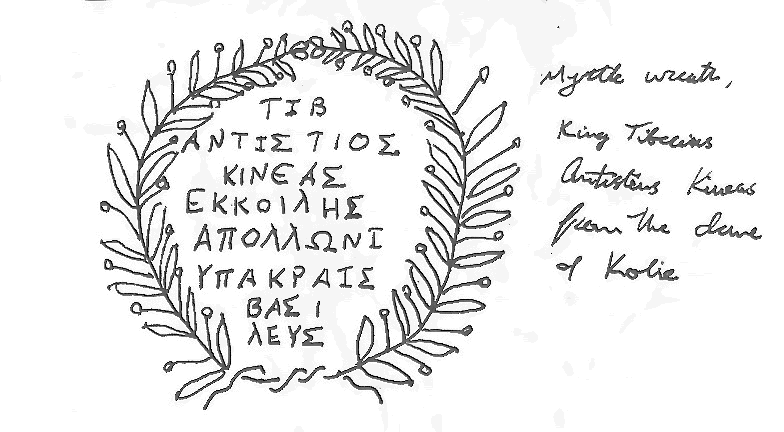 ΤΙΒ
ΑΝΤΙΣΤΙΟΣ
ΚΙΝΕΑΣ
ΕΚΚΟΙΛΗΣ
ΑΠΟΛΛΩΝΙ
ΥΠΑΚΡΑΙΣ
ΒΑΣΙ
ΛΕΥΣ
Myrtle wreath,
King Tiberius
Antistius Kineas
from the deme
of Koile